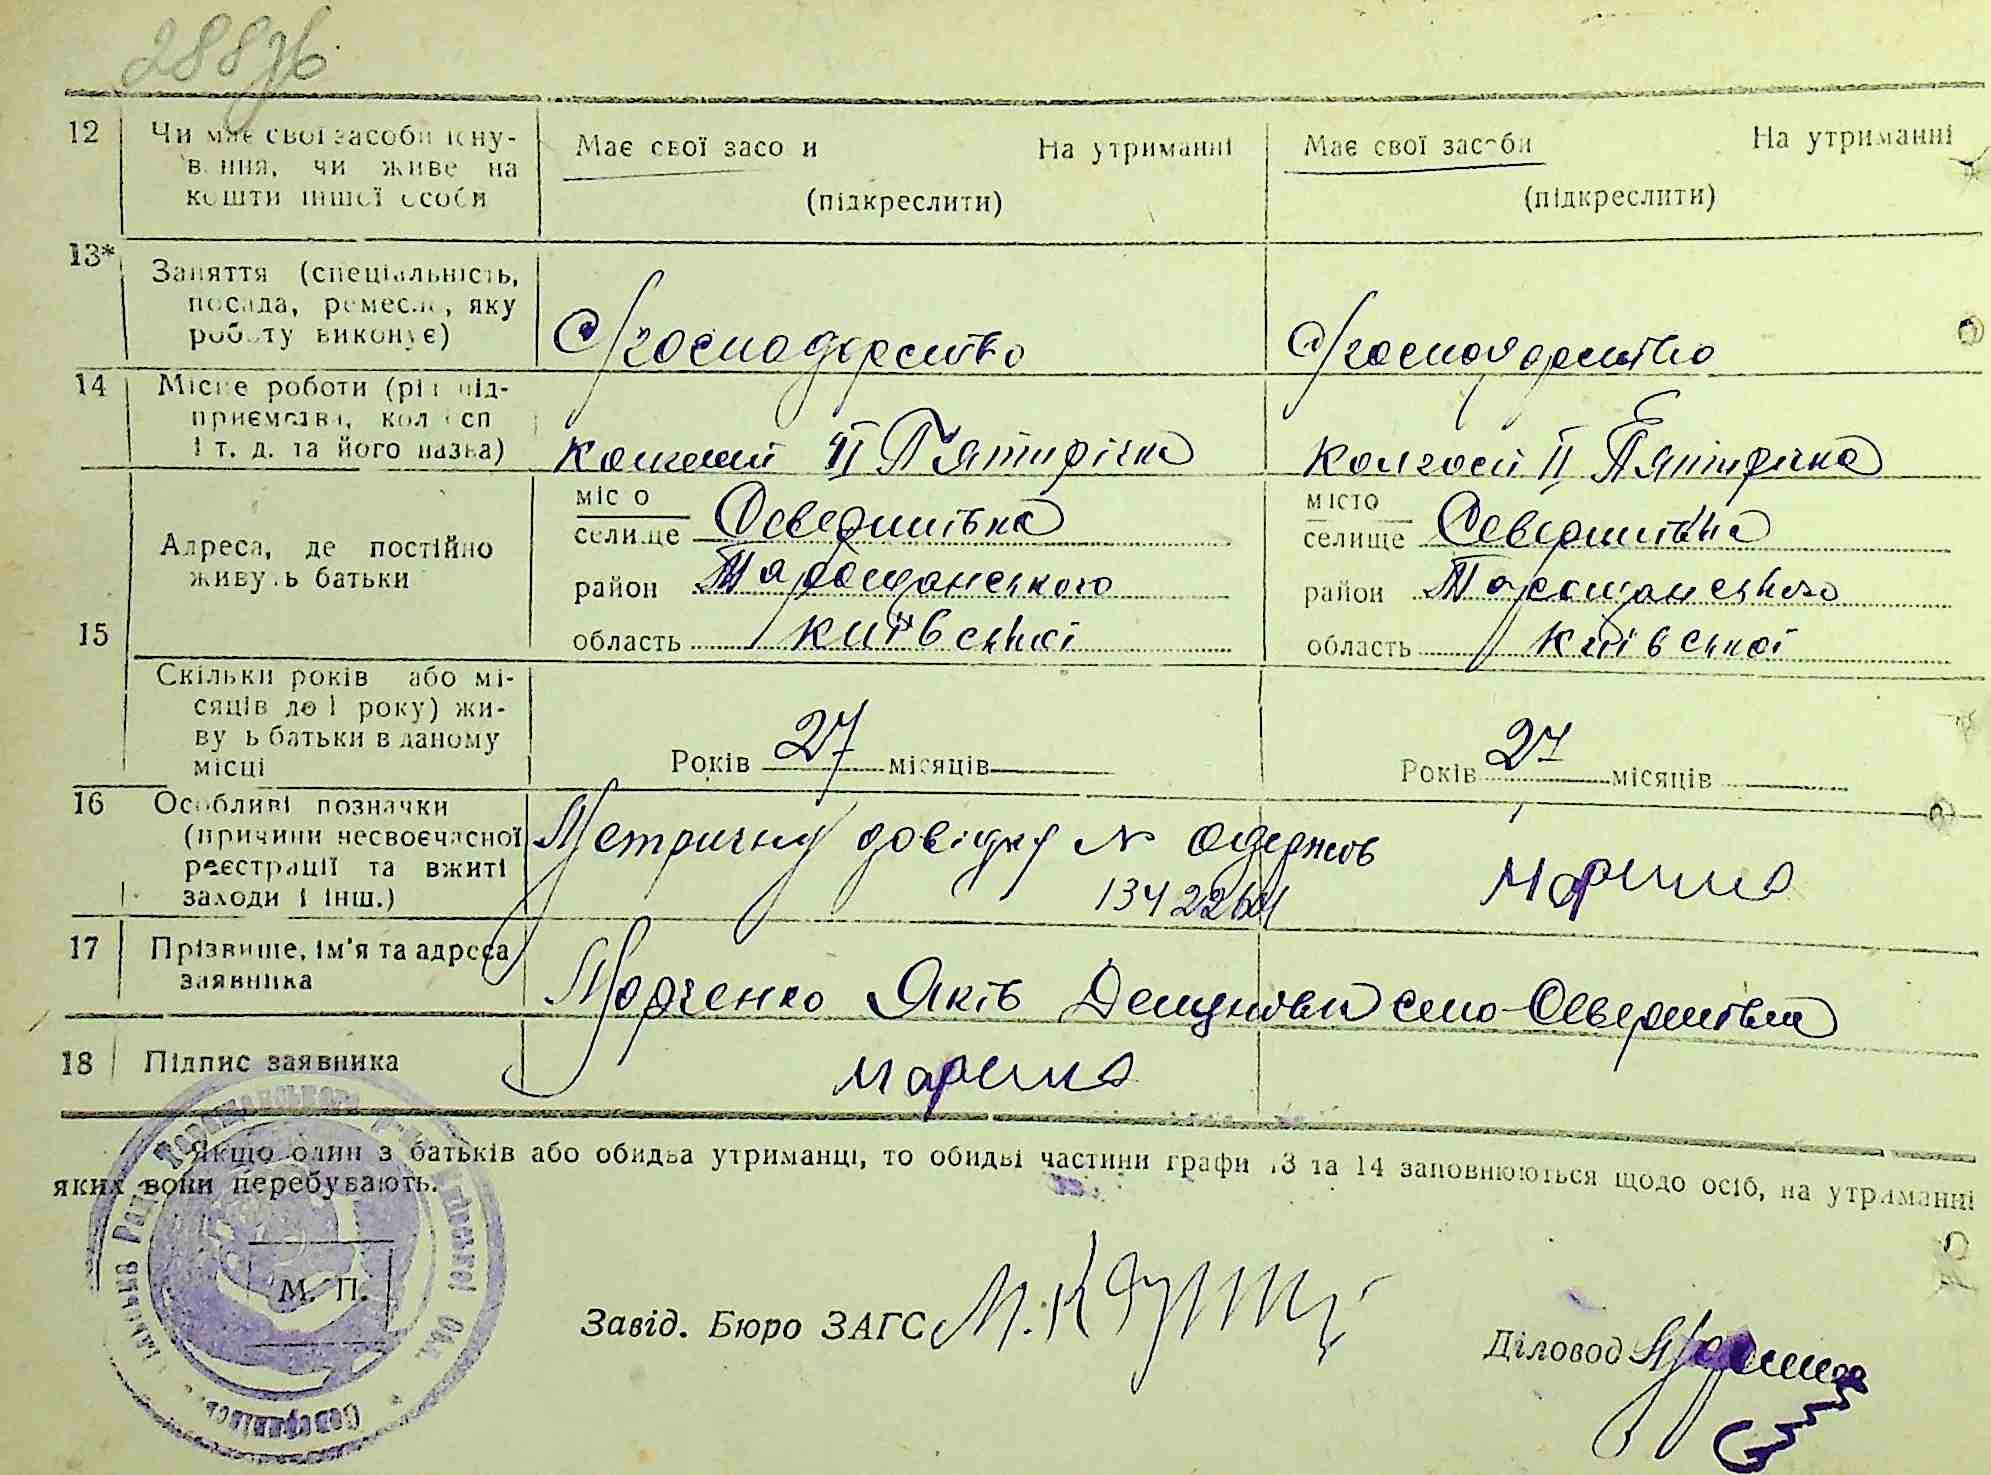 288зв
12 Чи має свої засоби існу-
вання, чи живе на
кошти іншої особи
Має свої засоби На утриманні
(підкреслити)
Має свої засоби На утриманні
(підкреслити)
13* Заняття (спеціальність,
посада, ремесло, яку
роботу виконує)
С/господарство
С/господарство
14 Місце роботи (рід під-
приємства, колгосп
і т. д. та його назва)
II П'ятирічка
Колгосп II П'ятирічка
15 Адреса, де постійно
живуть батьки
місто
селище Северинівка
район Таращанського
область київської
місто
селище Северинівка
район Таращанського
область київської
Скільки років або мі-
сяців до 1 року) жи-
вуть батьки в даному
місці
Років 27 місяців
Років 27 місяців
16 Особливі позначки
(причини несвоєчасної
реєстрації та вжиті
заходи і інш.)
Метричну довідку № одержав
17 Прізвище, ім'я та адреса
заявника
Марченко Яків село Северинівка
18 Підпис заявника
Якщо один з батьків або обидва утриманці, то обидві частини графи 13 та 14 заповнюються щодо осіб, на утриманні
яких вони перебувають.
М. П.
Завід. Бюро ЗАГС
Діловод